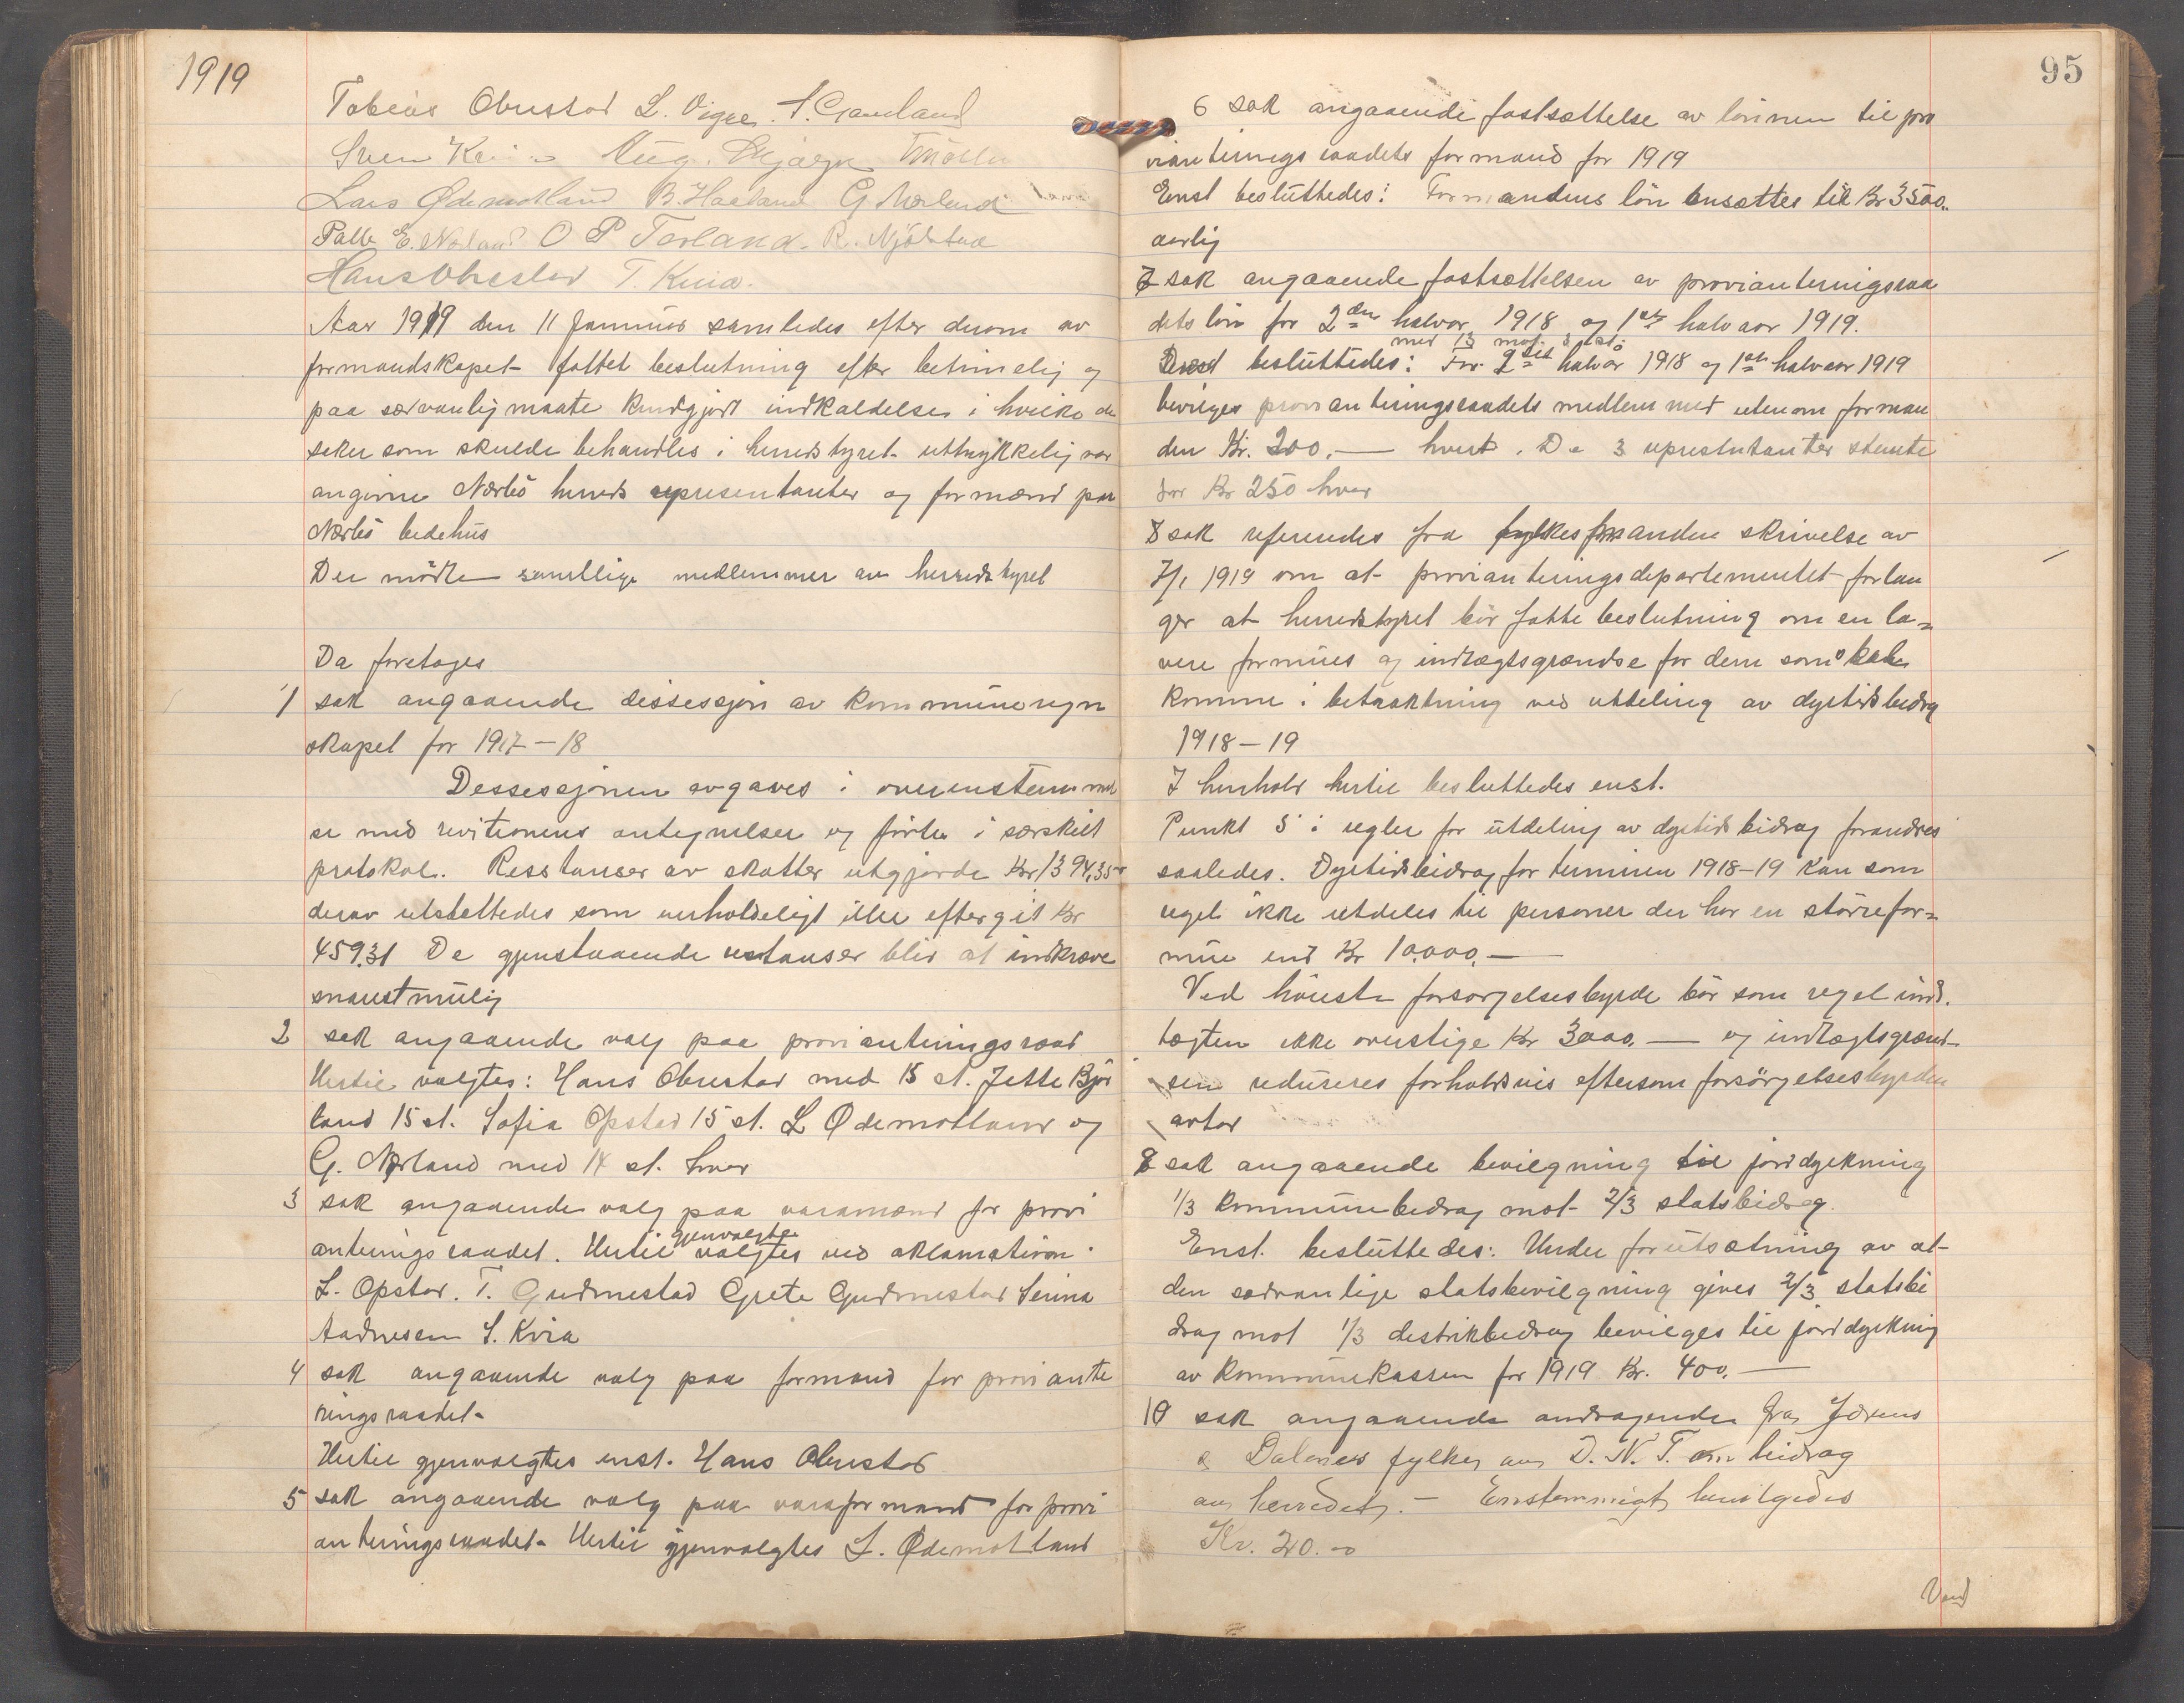 1919
Tobias Obrestad L. Vigre. S. Gaudland
Sven Kvia Aug. Skjærpe TMöller
Lars Ødemotland B. Haaland G. Nærland
Palle E. Nærland O P Torland. R. Njølstad
Hans Obrestad T. Kvia.
Aar 1919 den 11 Januar samledes efter derom av
formandskapet fattet beslutning efter betimelig og
paa sedvanlig maate kundgjort indkaldelse i hvilke de
saker som skulde behandles i herredstyret uttrykkelig var
angivne Nærbö herreds representanter og formænd paa
Nærbö bedehus
Der mötte samtlige medlemmer av herredstyret
Da foretoges
1 sak angaaende dessesjon av kommuneregn
skapet for 1917-18
Dessesjonen avgaves i overenstemmel
se med revitionens antegnelser og förtes i særskilt
protokol. Resstanser av skatter utgjorde Kr 1394,35
derav utsattedes som uerholdeligt eller eftergit Kr
459.31 De gjenstaaende restanser blir at indkræve
snarest mulig
2 sak angaaende valg paa provianteringsraad
Hertil valgtes: Hans Obrestad med 15 st. Jette Bjor
land 15 st. Sofia Opstad 15 st. L Ødemotland og
G. Nærland med 14 st. hver
3 sak angaaende valg paa varamænd for provi
anteringsraadet. Hertil gjenvalgtes valgtes ved aklamation:
L. Opstad. T. Gudmestad Grete Gudmestad Serina
Aadnesen S. Kvia
4 sak angaaende valg paa formand for proviante
ringsraadet.
Hertil gjenvalgtes enst. Hans Obrestad
5 sak angaaende valg paa varaformand for provi
anteringsraadet. Hertil gjenvalgtes L. Ødemotland
95
6 sak angaaende fastsættelse av lönnen til pro
vianteringsraadets formand for 1919
Enst besluttedes: Formandens lön ansættes til Kr 3500..
aarlig
7 sak angaaende fastsættelsen av provianteringsraa
dets lön for 2den halvaar 1918 og 1ste halvaar 1919.
med 13 mot 3 st.
besluttedes: For 2det halvår 1918 og 1ste halvaar 1919
bevilges provianteringsraadets medlemmer utenom forman
den Kr. 200.— hvert. De 3 represtntanter stemte
for Kr 250 hver
8 sak refereredes fra fylkesmanden skrivelse av
7/1 1919 om at provianteringsdepartementet forlan
ger at herredstyret bör fatte beslutning om en la=
vere formues og indtægtsgrændse for dem som skal
komme i betraktning ved utdeling av dyrtidsbidrag
1918-19
I henhold hertil besluttedes enst.
Punkt 5 i regler for utdeling av dyrtidsbidrag forandres
saaledes. Dyrtidsbidrag for terminen 1918-19 kan som
regel ikke utdeles til personer der har en större for=
mue end Kr 10.000.—
Ved höieste forsörgelsesbyrde bör som regel ind.
tægten ikke overstige Kr 3000.— og indtægtsgrænd-
sen reduseres forholdsvis eftersom forsörgelsesbyrden
avtar
9 sak angaaende bevilgning til jorddyrkning
1/3 kommunebedrag mot 2/3 statsbidrag.
Enst. besluttedes: Under forutsætning av at
den sedvanlige statsbevilgning gives 2/3 statsbi
drag mot 1/3 destriktbedrag bevilges til jorddyrkning
av kommunekassen for 1919 Kr. 400.—
10 sak angaaende andragende fra Jæderens
& Dalenes fylker av D. N. T. om bidrag
av herredet. — Enstemmigt bevilgedes
Kr. 20.—
Vend